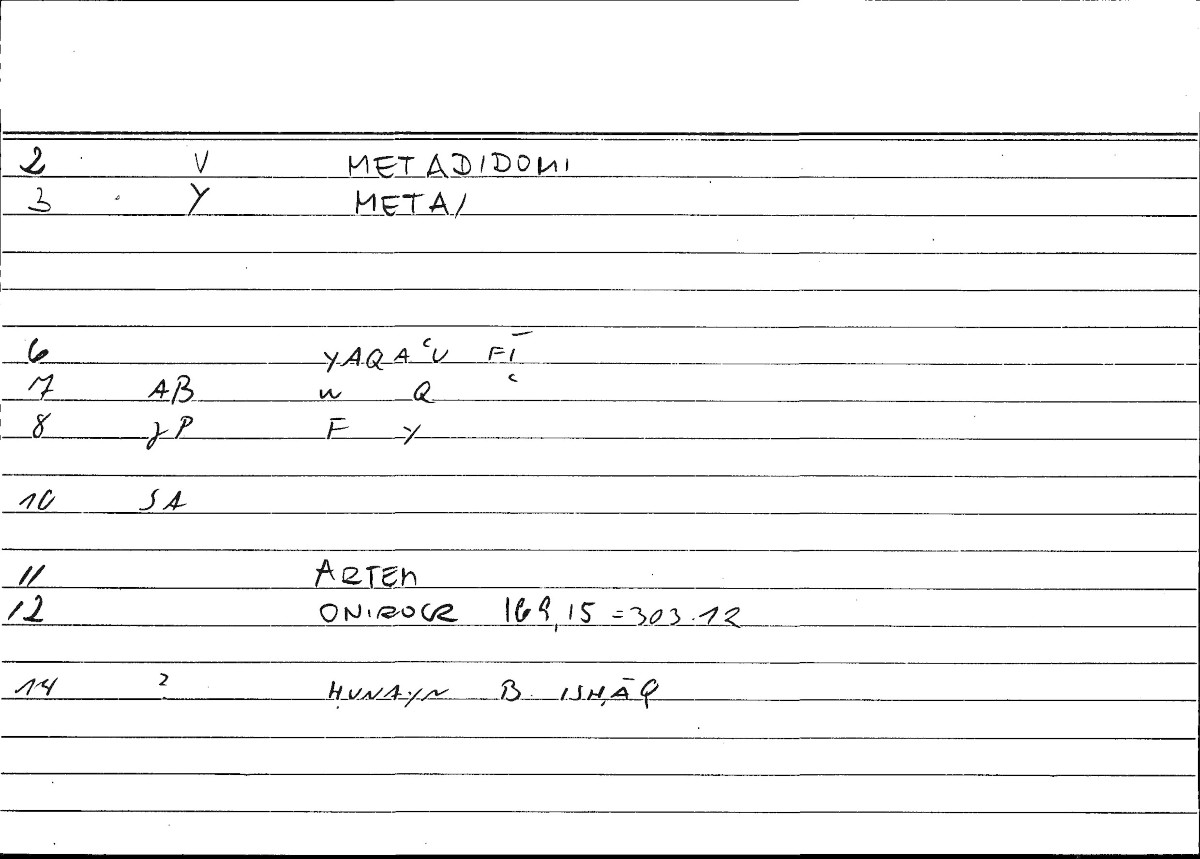 2 V METADIDOMI
3 Y META/
6 YAQAʿU FĪ
7 AB W Q ʿ
8 JP F Y
10 SA
11 ARTEM
12 ONIROCR 169,15 = 303.12
14 ? ḤUNAYN B ISḤĀQ